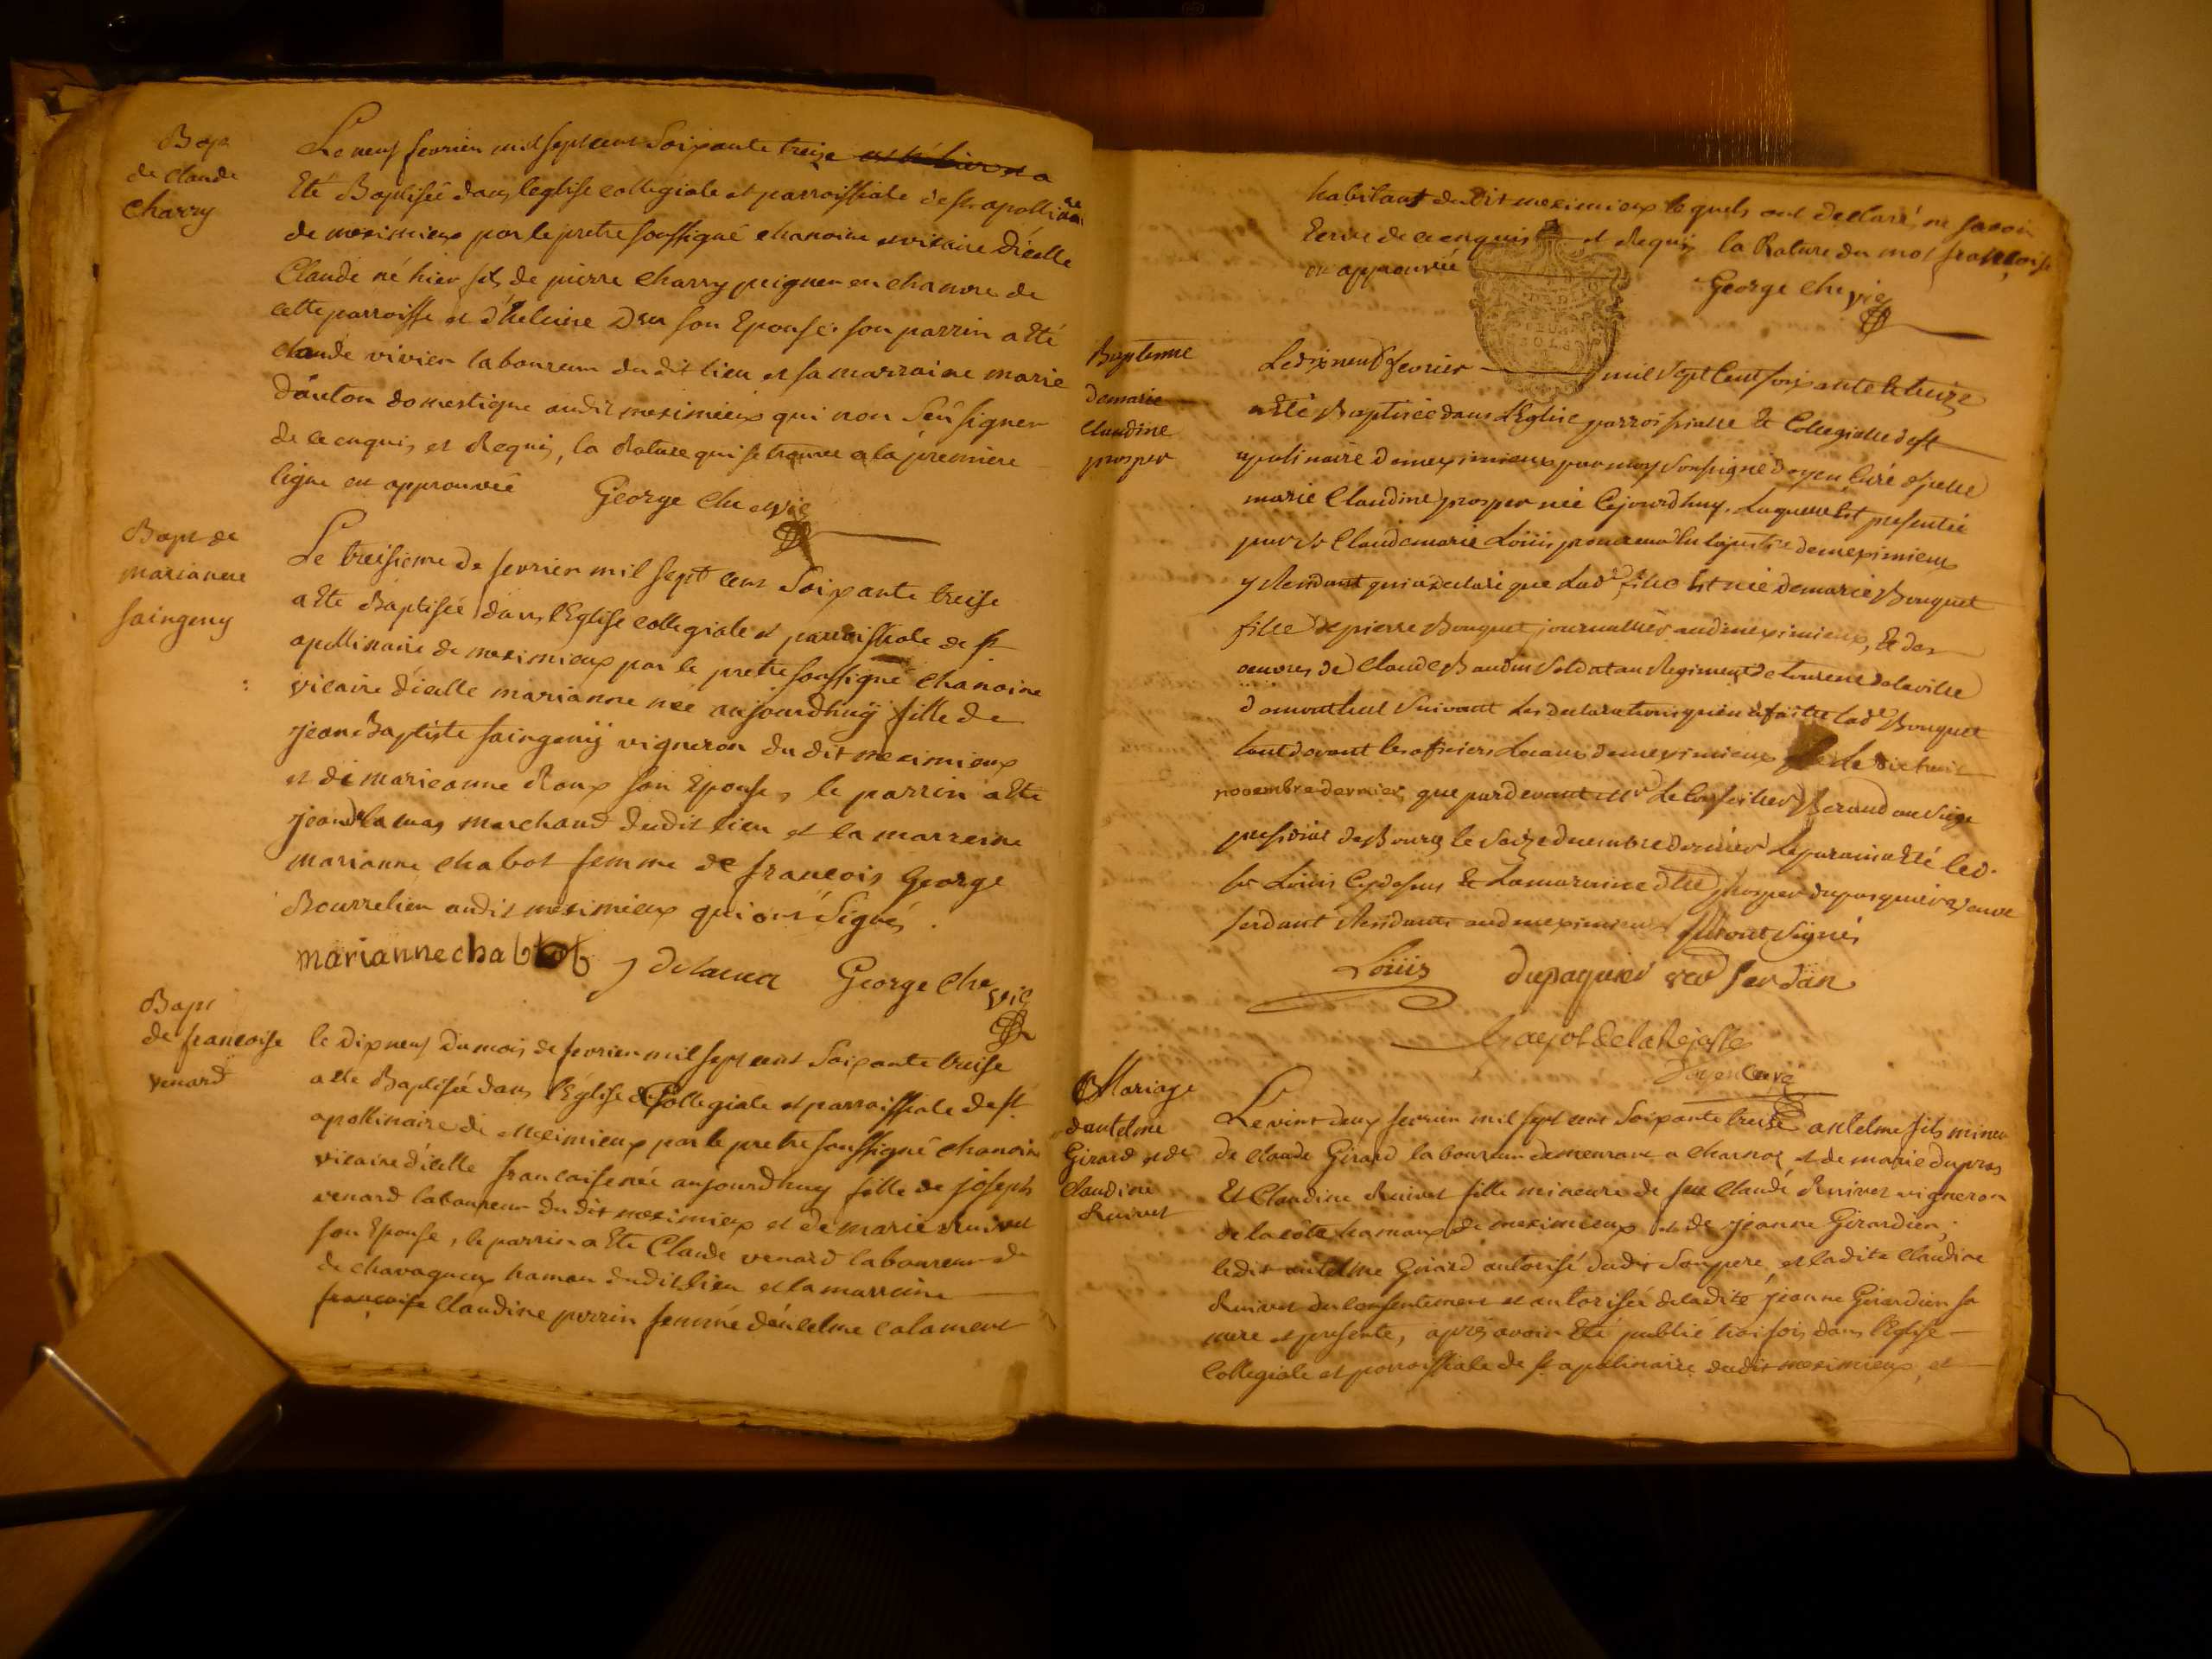 Bap
de Claude
Charry
Le neuf fevrier mil sept cent Soixante treize est né hier et a
Eté Baptiseé dans leglise collegiale et parroissiale de st apollinaire
de meximieux par le pretre soussigné chanoine et vicaire d'icelle
Claude né hier fils de pierre Charry peigneur en chanvre de
cette parroisse et d'heleine Dru son Epouse. son parrin a Eté
claude vivier laboureur du dit lieu et sa marraine marie
danton domestique audit meximieux qui n'ont Seû signer
de ce enquis et Requis, la Rature qui se trouve a la premiere
ligne est approuvée George Che vic
Bapt de
marianne
saingeny
Le treisieme de fevrier mil sept cent Soixante treise
a Eté Baptiseé dans l'Eglise collegiale et parroissiale de st
apollinaire de meximieux par le pretre soussigné chanoine
vicaire d'icelle marianne née aujourdhuÿ fille de
jean Baptiste saingenÿ vigneron du dit meximieux
et de marieanne Roux son Epouse, le parrin a Eté
jean delamas marchand dudit lieu et la marreine
marianne chabot femme de francois George
Bourrelier audit meximieux qui ont Signés.
marianne chabot j George Che vic
Bapt
de francoise
venard
le dix neuf du mois de fevrier mil sept cent Soixante treise
a ete Baptiseé dans l'Église Collegiale et parroissiale de st
apollinaire de Meximieux par le pretre soussigné chanoine
vicaire d'icelle francoise née aujourdhuy fille de joseph
venard laboureur du dit meximieux et de marie Ruivet
son Epouse, le parrin a Ete Claude venard laboureur de
de chavagneux hamau dudit lieu et la marreine
françoise Claudine perrin femme d'anthelme calament
habitant dudit meximieux lesquels ont declaré, ne savoir
Ecrire de ce enquis et Requis la Rature du mot françoise
est approuvée
George Che vic
Baptesme
de marie
Claudine
prosper
Le dix neuf fevrier mil sept Cent soixante et treize
a Eté Baptisée dans L'Eglise parroissialle Et Collegialle de st
apolinaire de meximieux par moy Soussigné doyen Curé d'jcelle
marie Claudine prosper née Cejourdhuy. Laquelle est presentée
par Sr Claude marie Loüis procureur en la justice de meximieux
y Residant qui a declaré que Lade fille Est née de marie Bouquet
fille de pierre Bouquet journallier aud meximieux, Et des
oeuvres de Claude Baudin Soldat au Regiment de touraine de la ville
Suivant Les declarations qu'en a faitte lade Bouquet
tant devant les officiers Locaux de meximieux Le dix huit
novembre dernier, que pardevant Mr Le Conseiller Beraud au Siege
presidial de Bourg le Seize decembre dernier Le parain a Eté led.
Sr Loüis Cydessus Et La maraine dlle prosper dupasquier veuve
serdant Residants aud meximieux qui ont Signés
Loüis dupaquier vve Serdan
doyen Curé
Mariage
dantelme
Girard et de
Claudine
Ruivet
Le vint deux fevrier mil sept cent Soixante treise antelme fils mineur
de claude Girard laboureur demeurant a charnoz et de marie dupras
Et Claudine Ruivet fille mineure de feu Claude Ruivet vigneron
de la côte hamaux de meximieux et de jeanne Girardier.
ledit antelme Girard autorisé dudit Son pere, et ladite Claudine
Ruivet du consentement et autorisée de ladite jeanne Girardier sa
mere et presente, après avoir Eté publié trois fois dans l'Eglise
Collegiale et parroissiale de st apolinaire dudit meximieux, et